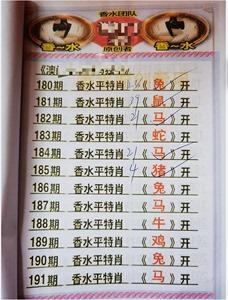 香水团队
香~水
原创者
香~水
《澳
180期 香水平特肖《兔》开
181期 香水平特肖 19《鼠》开
182期 香水平特肖 21《马》开
183期 香水平特肖《蛇》开
184期 香水平特肖 21《马》开
185期 香水平特肖 4《猪》开
186期 香水平特肖《兔》开
187期 香水平特肖《马》开
188期 香水平特肖《牛》开
189期 香水平特肖《鸡》开
190期 香水平特肖《兔》开
191期 香水平特肖《马》开